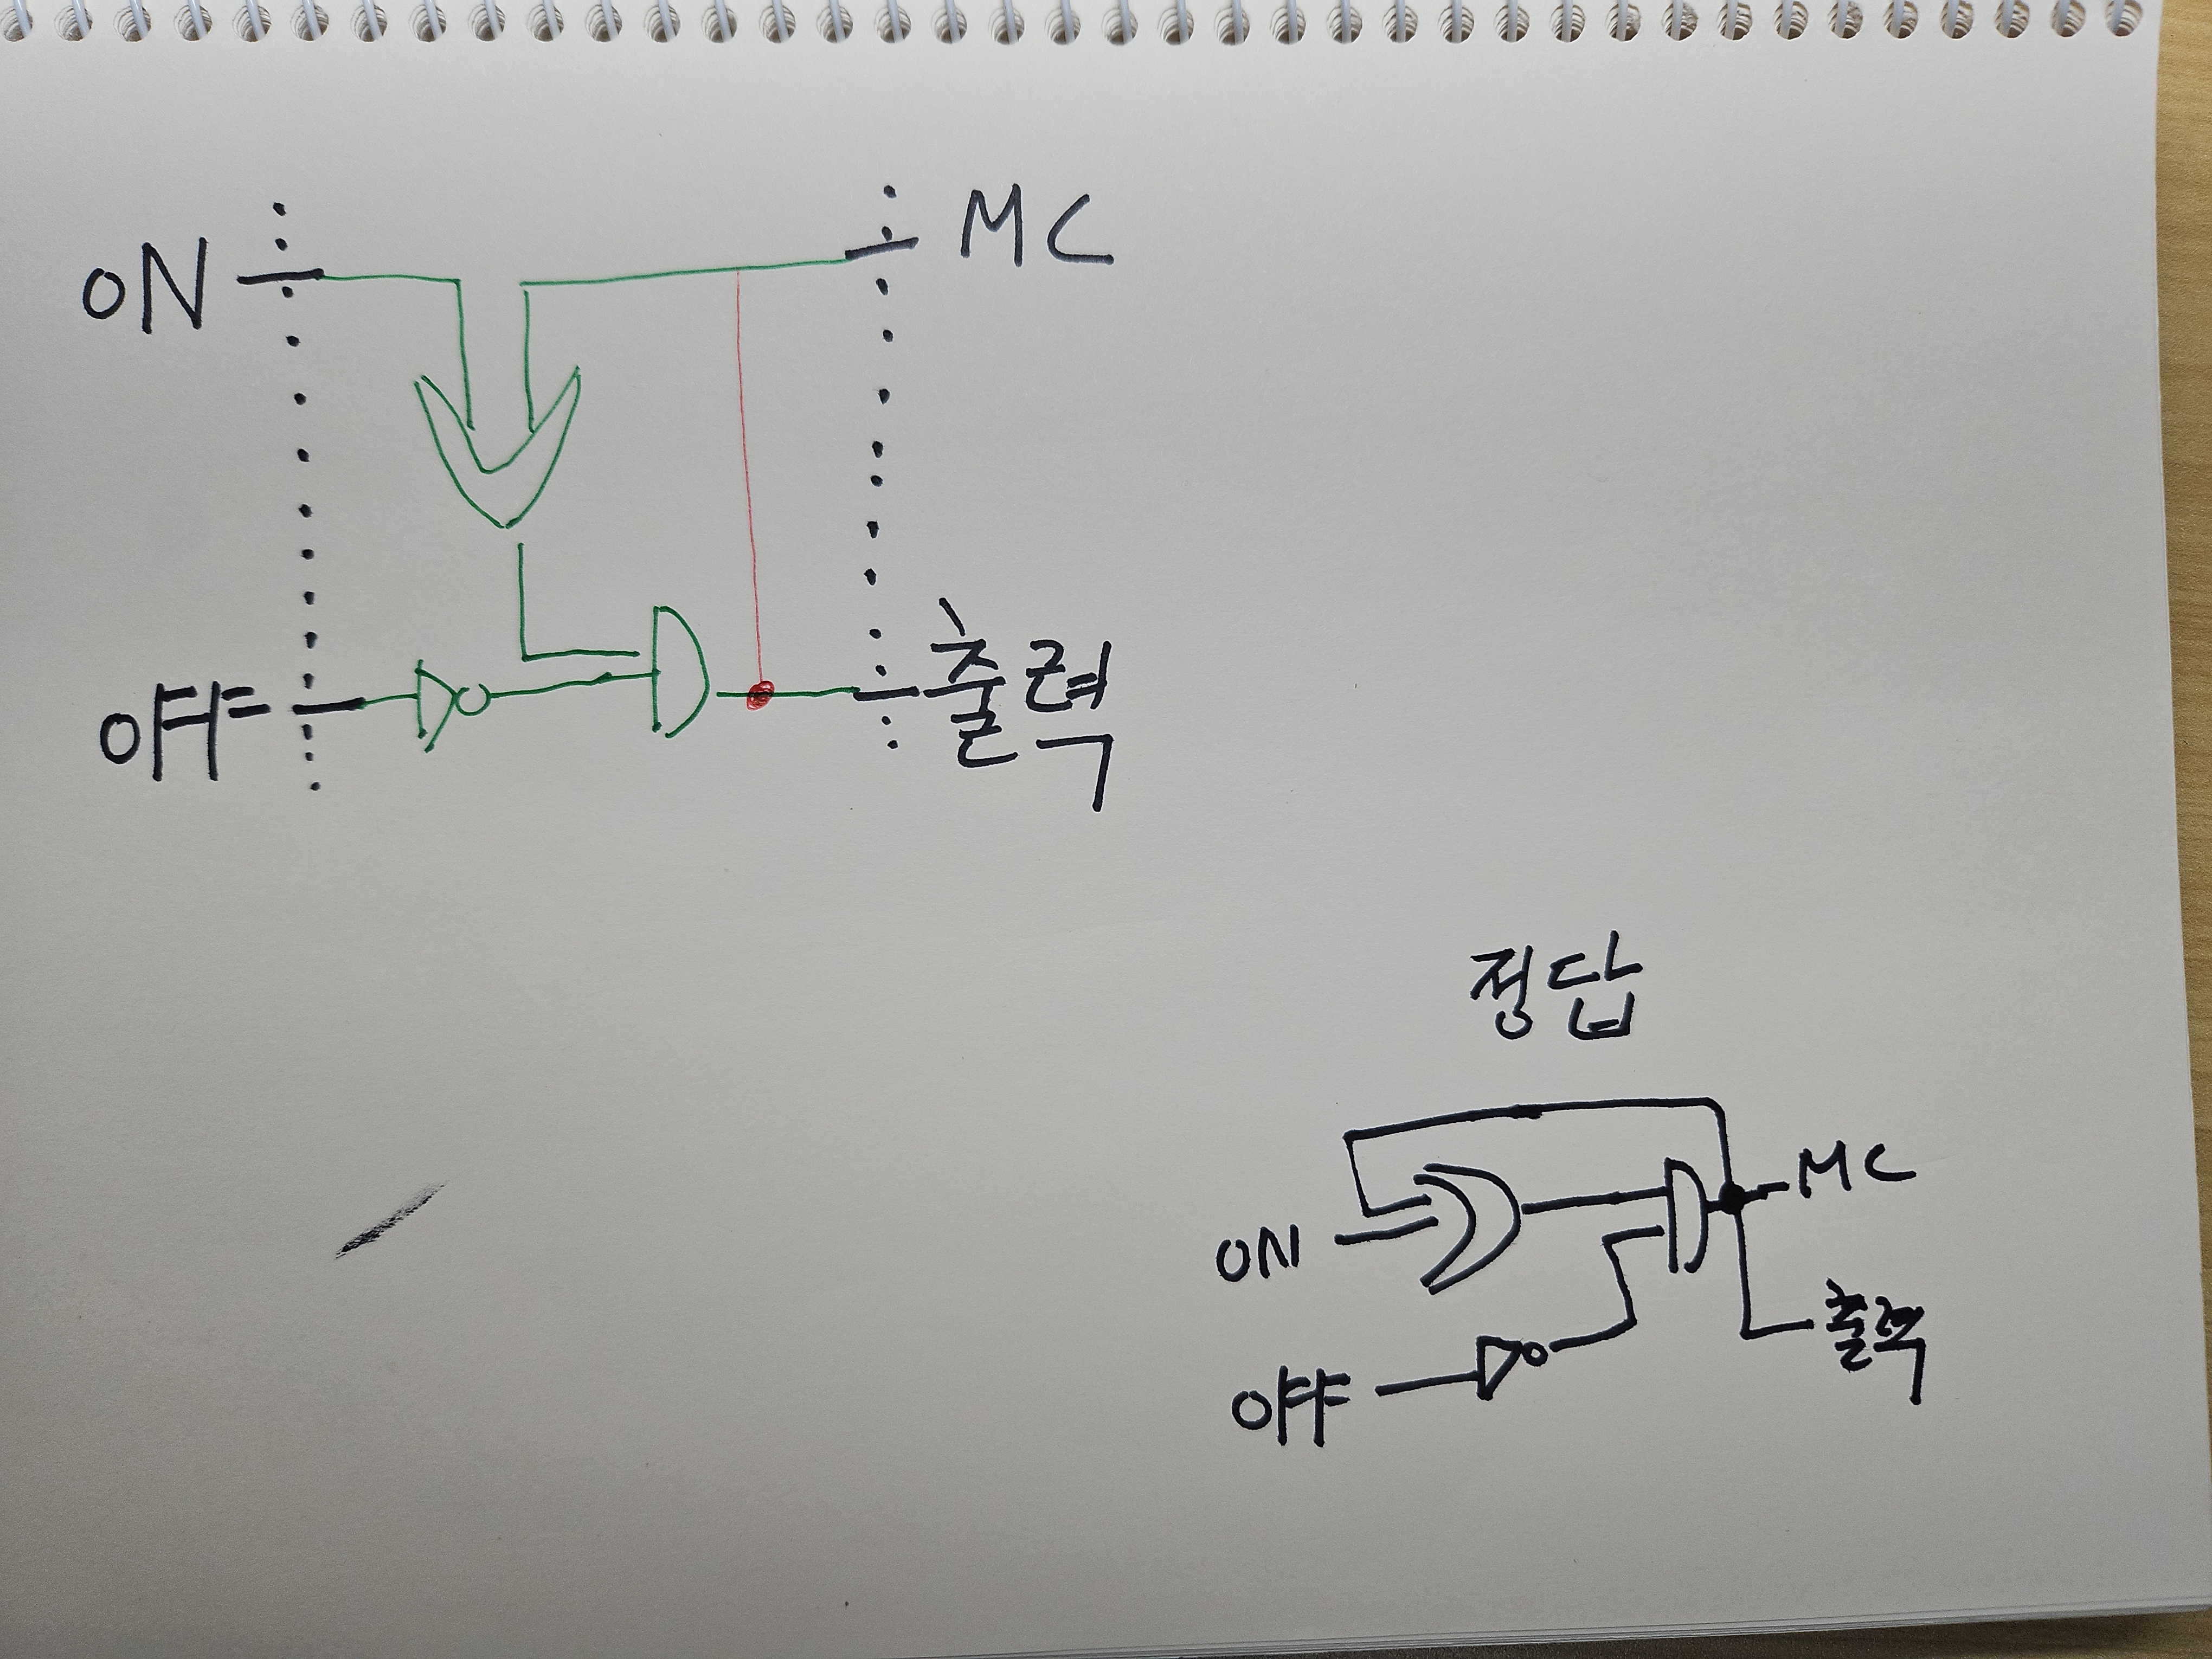 ON
MC
OFF
출력
정답
ON
MC
OFF
출력